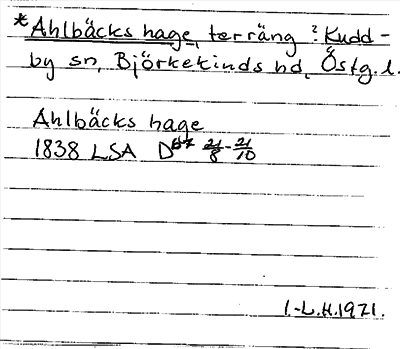 *Ahlbäcks hage, terräng ? Kudd-
by sn, Björkekinds hd, Östg.l.
Ahlbäcks hage
1838 LSA D 21/8-21/10
I.-L.H.1971.